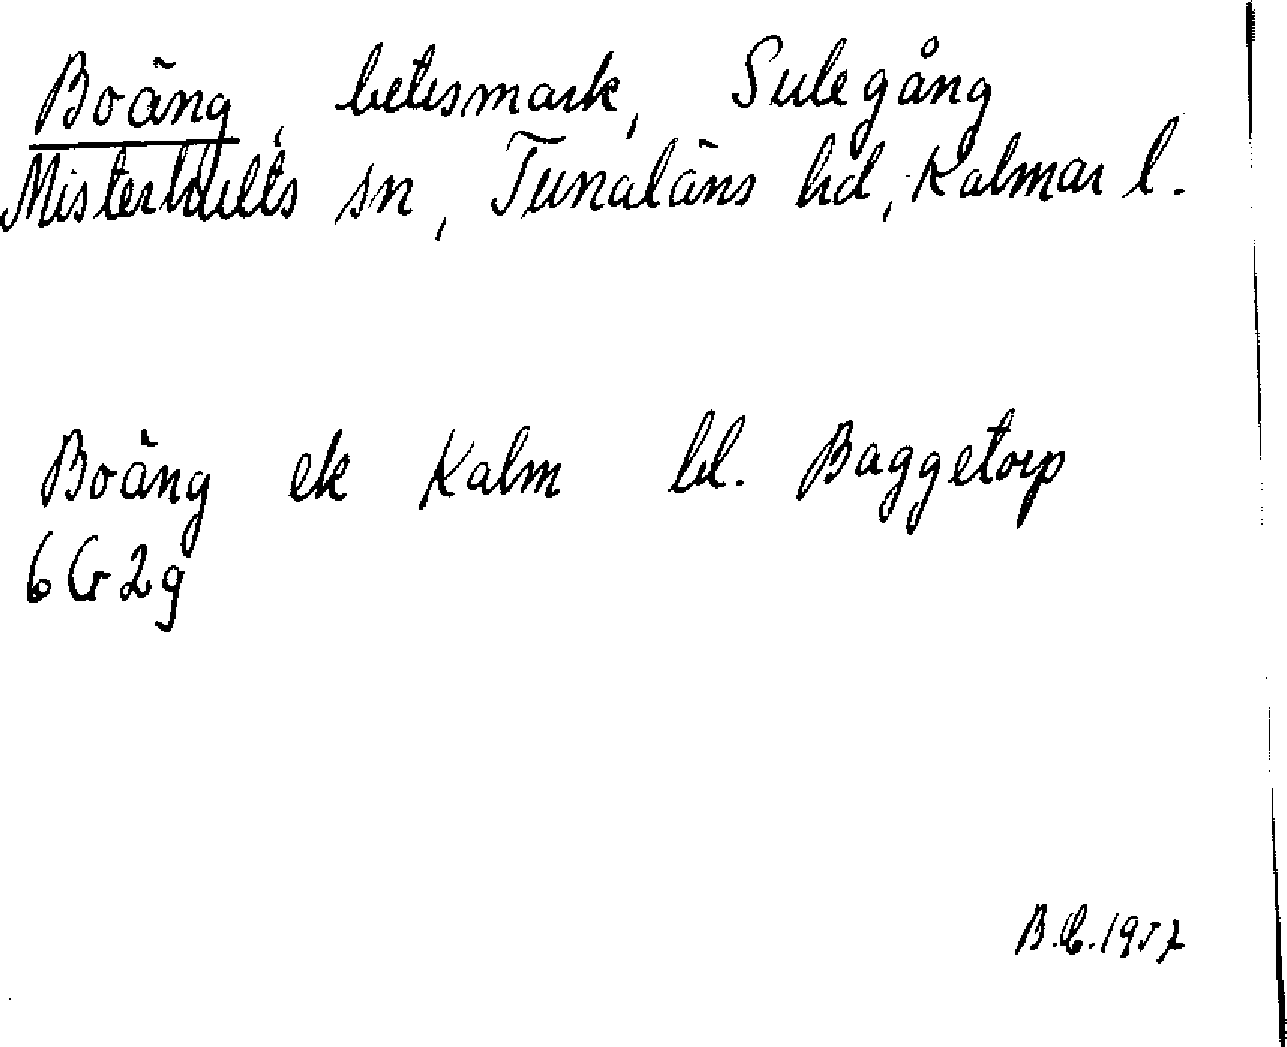 Boäng, betesmark, Sulegång
Misterhults sn, Tunaläns hd, Kalmar l.
Boäng ek Kalm bl. Baggetorp
6G2g
B.C. 1957